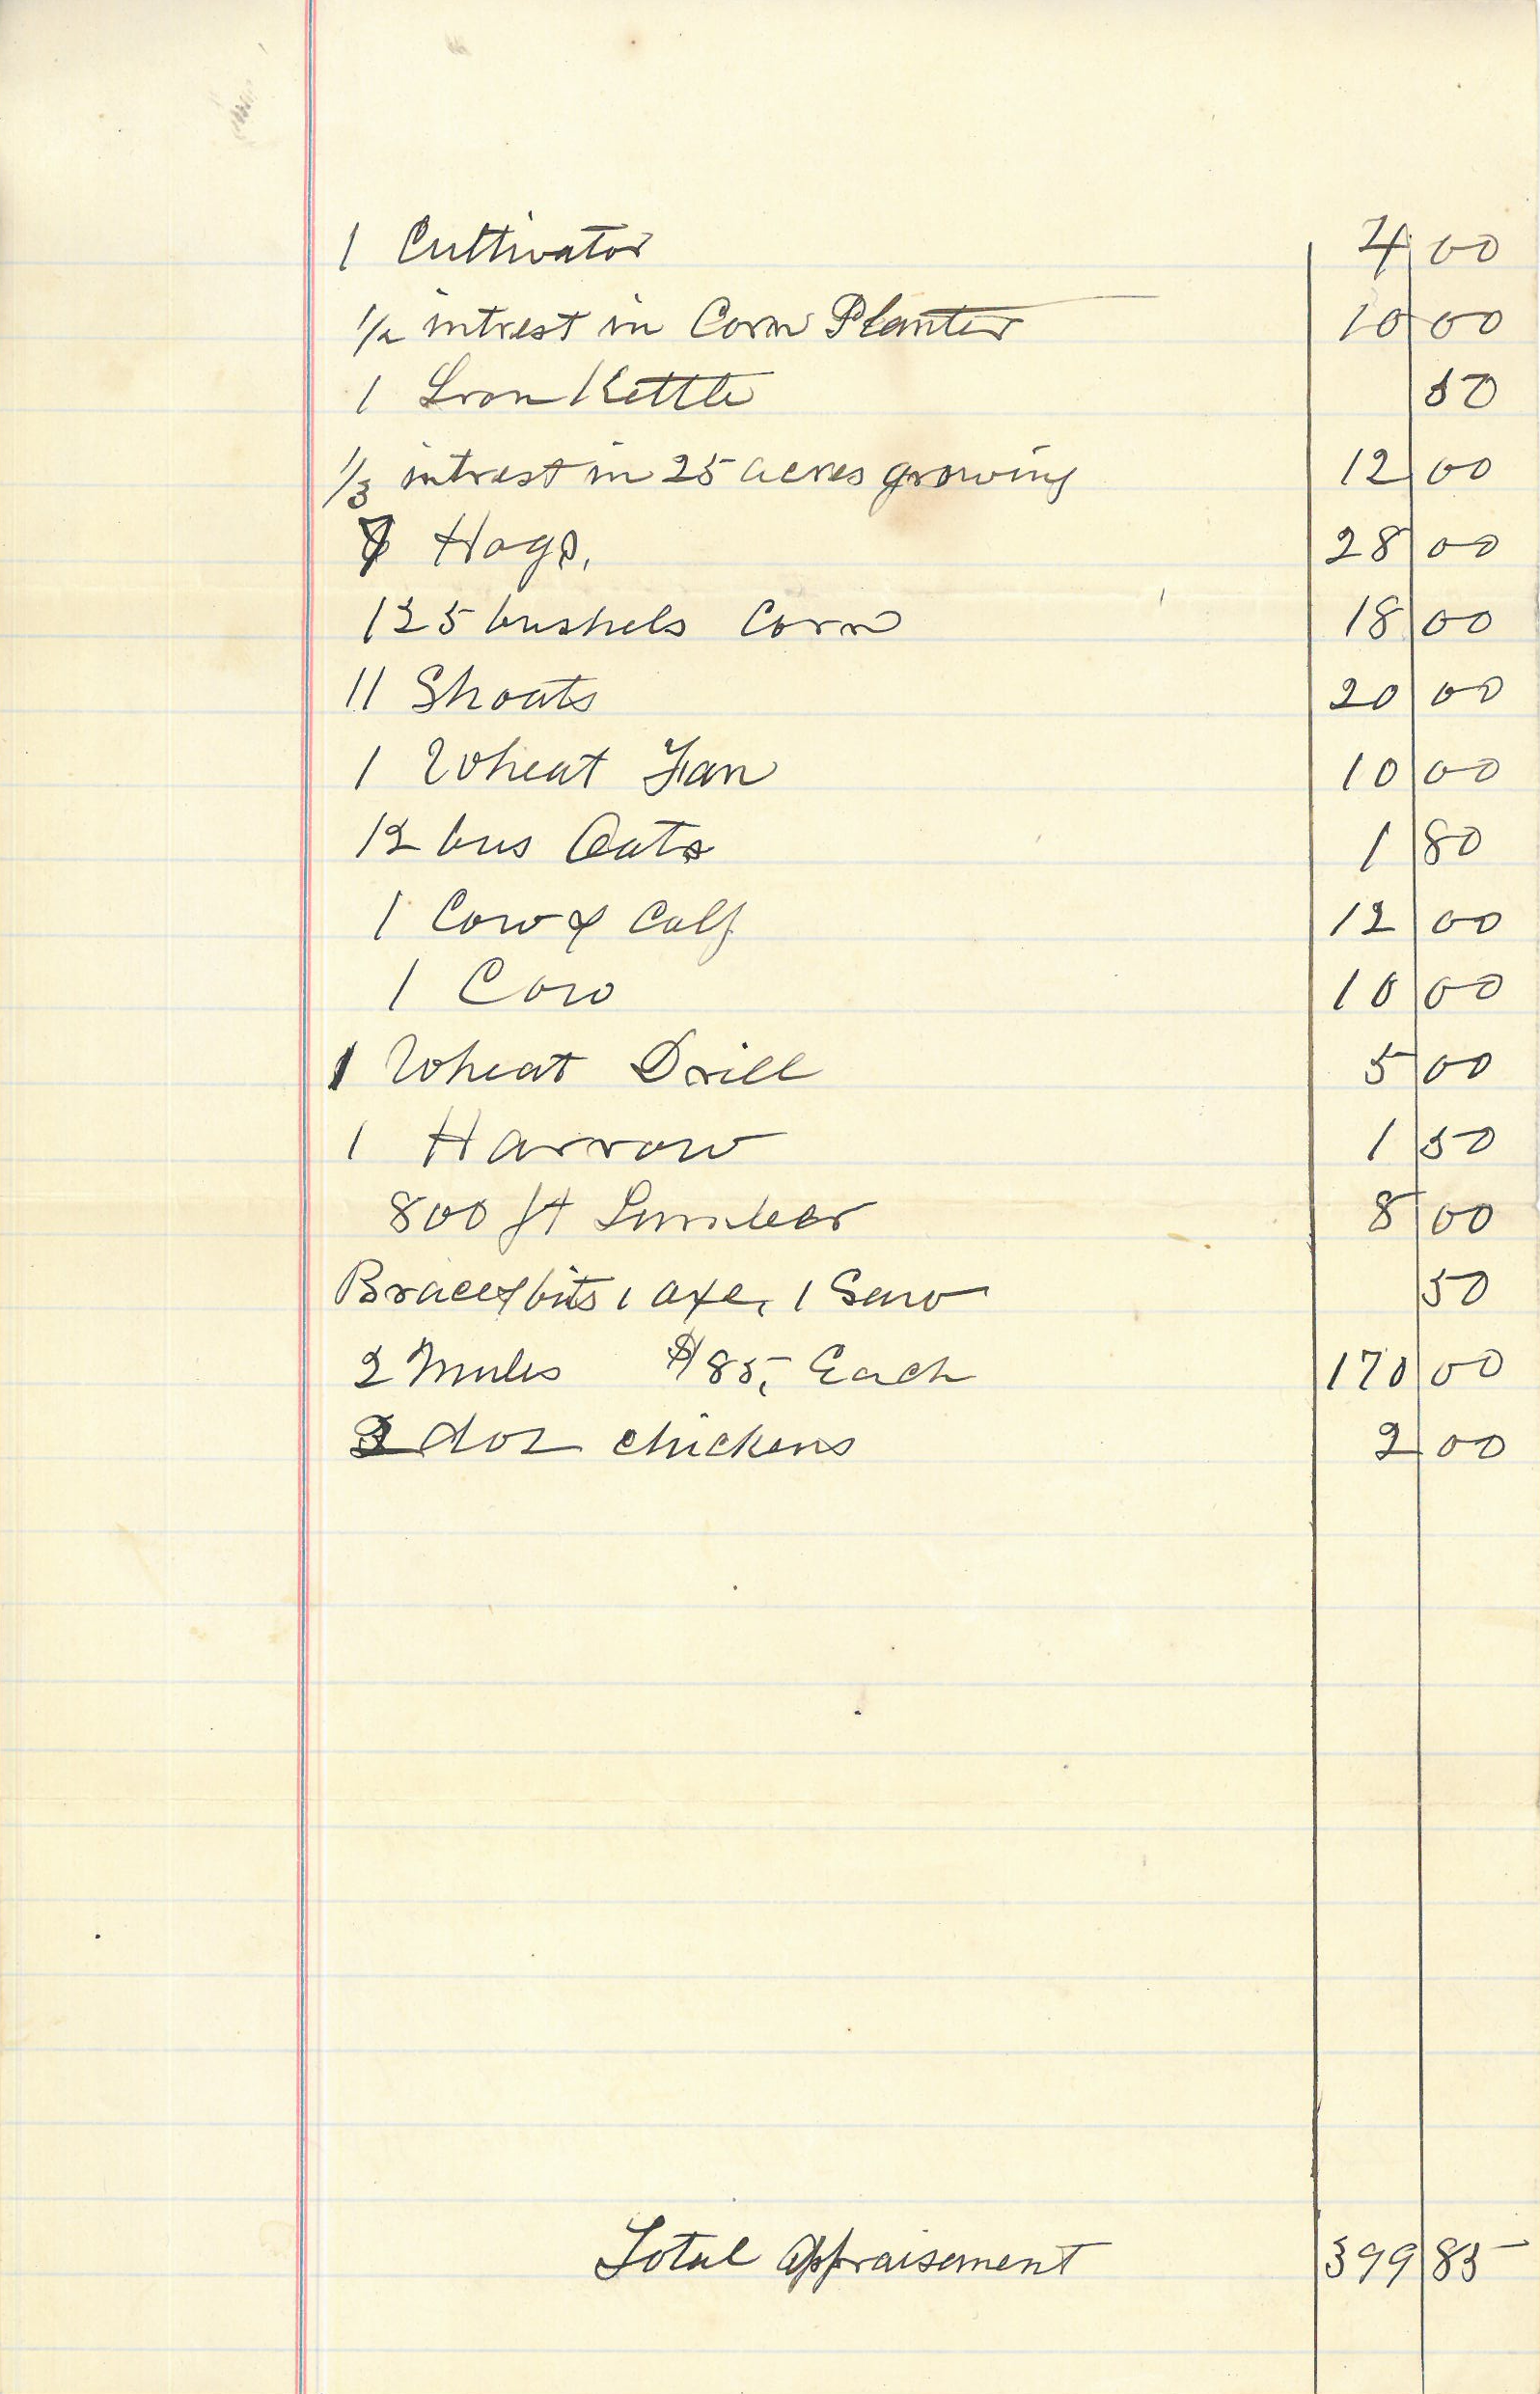 1 Cultivator 4 00
1/2 intrest in Corn Planter 10 00
1 Iron Kettle 50
1/3 intrest in 25 acres growing 12 00
7 Hogs. 28 00
125 bushels Corn 18 00
11 Shoats 20 00
1 Wheat Fan 10 00
12 bus Oats 1 80
1 Cow & Calf 12 00
1 Cow 10 00
1 Wheat Drill 5 00
1 Harrow 1 50
800 ft Lumber 8 00
Brace & bits 1 axe, 1 Saw 50
2 Mules $85, Each 170 00
doz chickens 2 00
Total appraisement 399 85